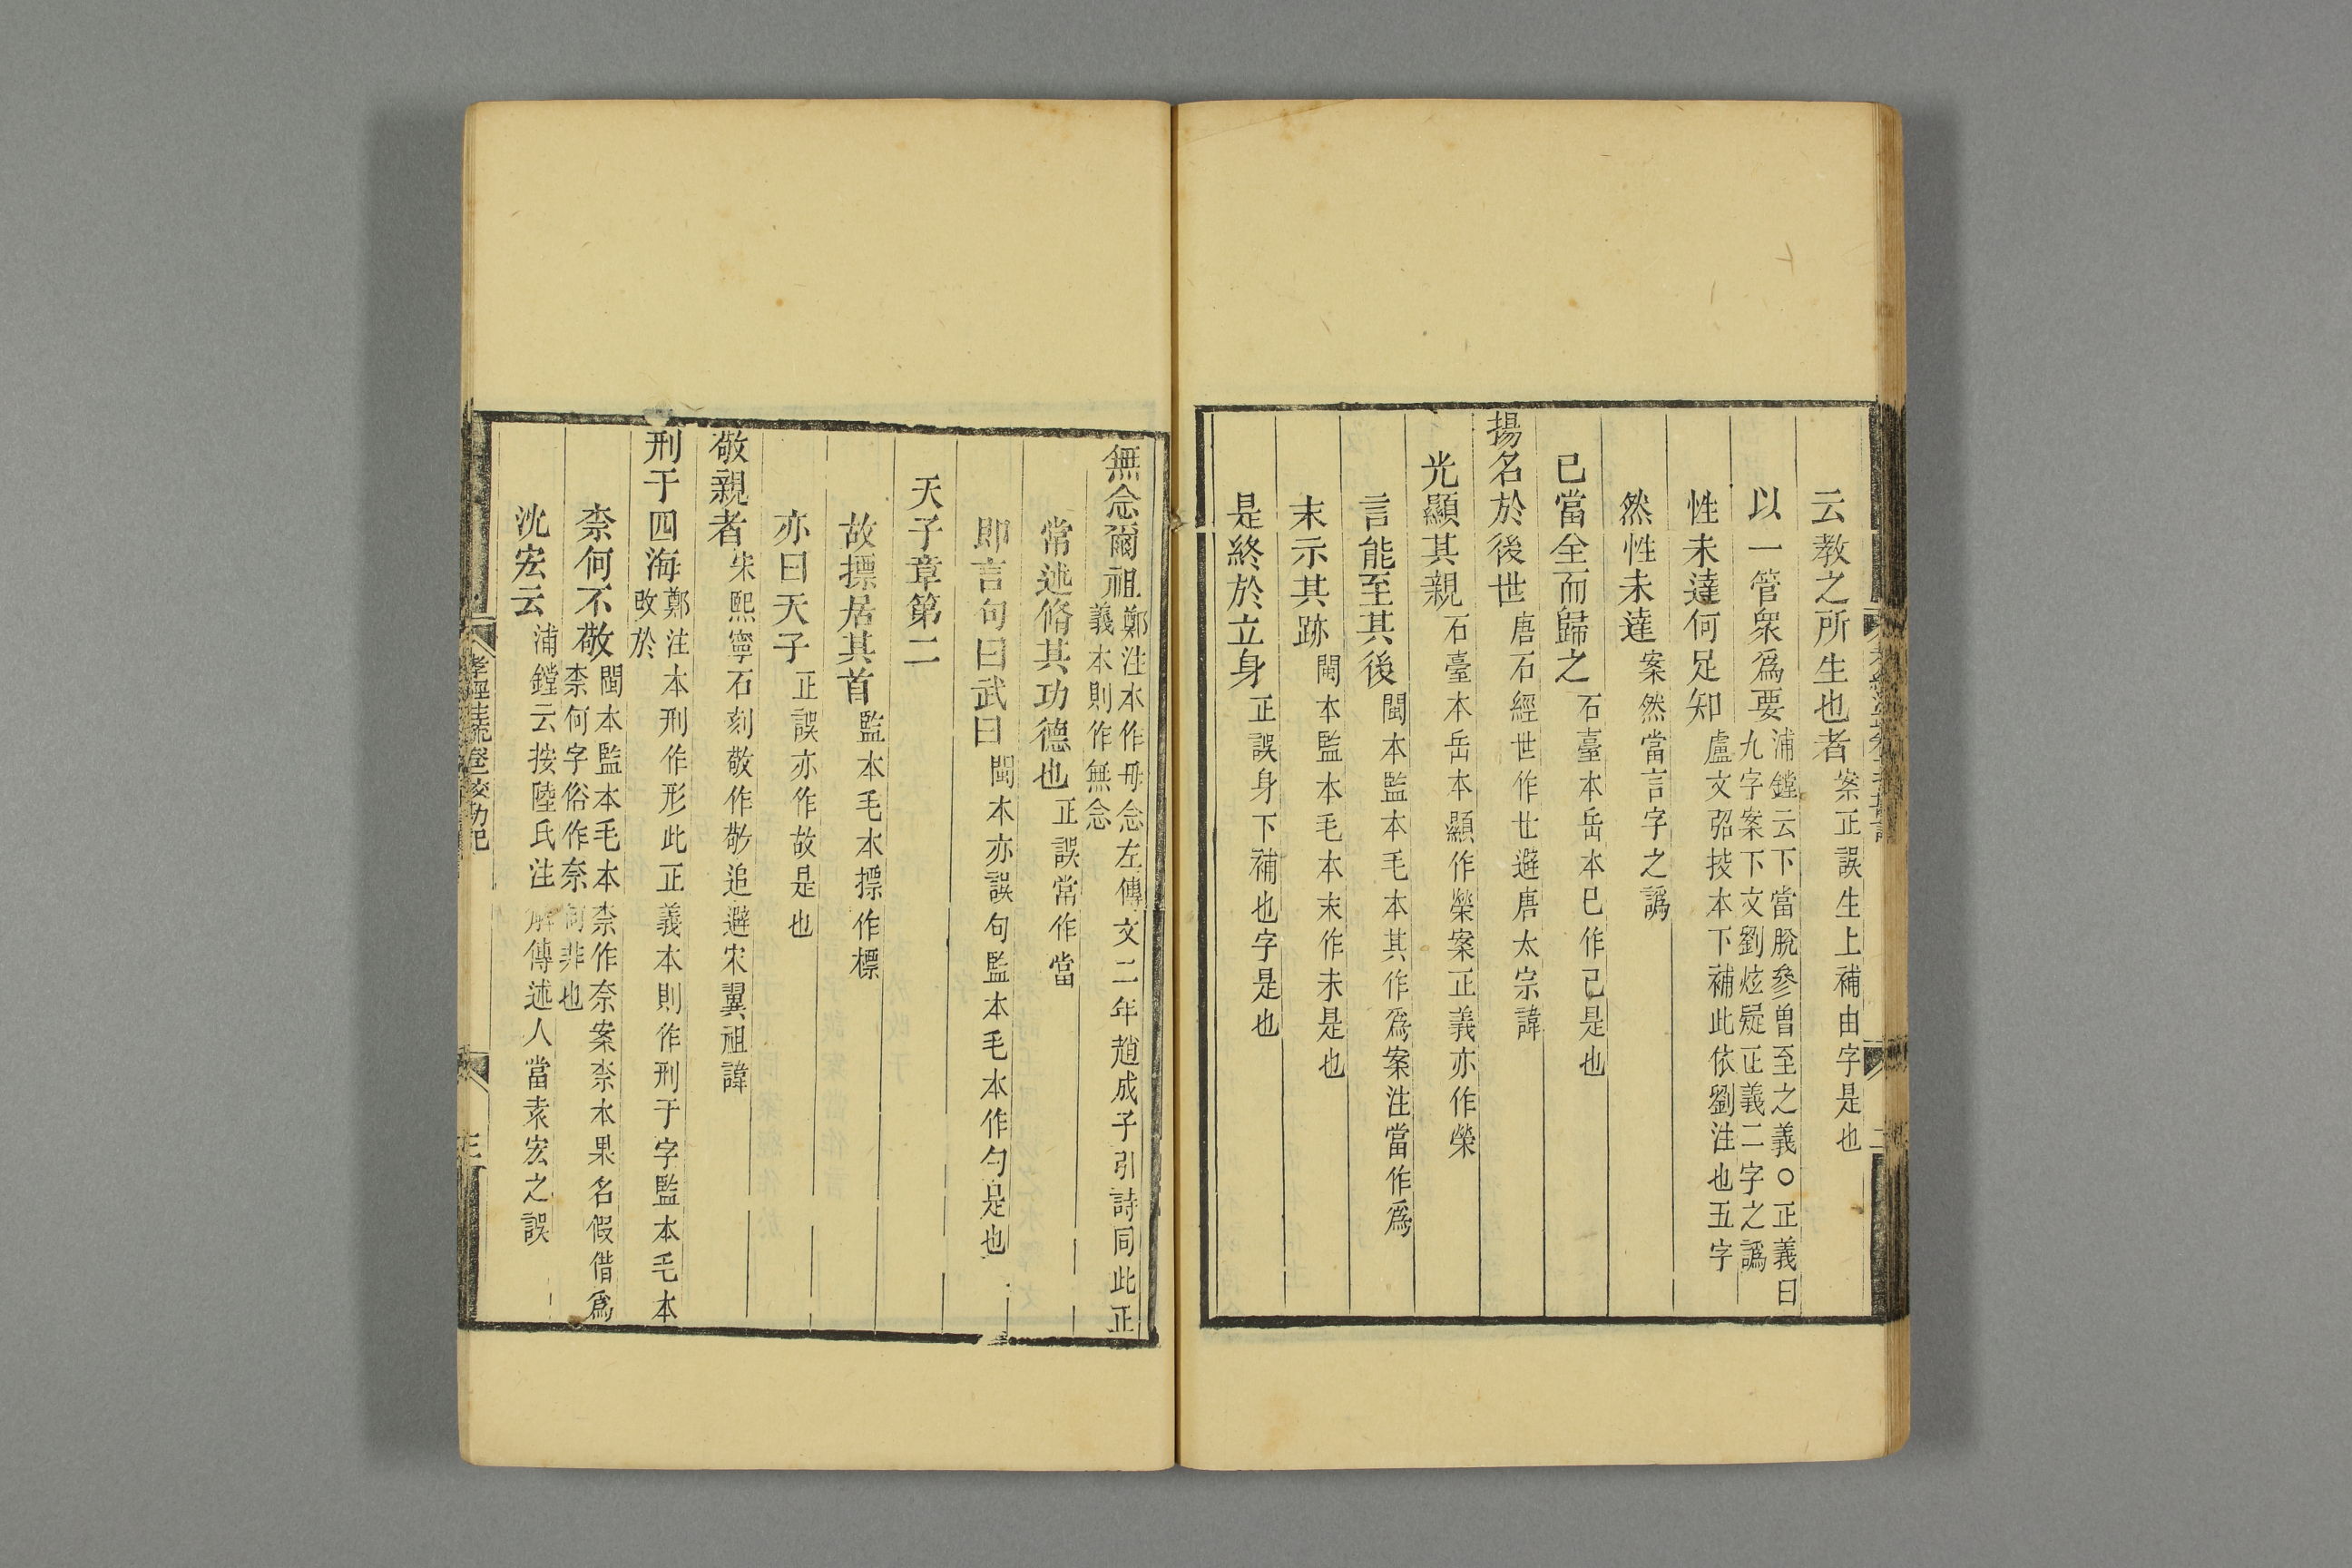 云教之所生也者案正誤生上補由字是也
以一管衆爲要浦鏜云下當脫參曽至之義○正義曰九字案下文劉炫疑正義二字之譌
性未達何足知盧文弨挍本下補此依劉注也五字
然性未達案然當言字之譌
已當全而歸之石臺本岳本巳作己是也
揚名於後世唐石經世作世避唐太宗諱
光顯其親石臺本岳本顯作榮案正義亦作榮
言能至其後閩本監本毛本其作爲案注當作爲
末示其跡閩本監本毛本末作未是也
是終於立身正誤身下補也字是也
無念爾祖鄭注本作毋念左傳文二年趙成子引詩同此正義本則作無念
常述脩其功德也正誤常作當
即言句曰武曰閩本亦誤句監本毛本作勻是也
天子章第二
故摽居其首監本毛本摽作標
亦曰天子正誤亦作故是也
敬親者宋熙寧石刻敬作敬追避宋翼祖諱
刑于四海鄭注本刑作形此正義本則作刑于字監本毛本改於
柰何不敬閩本監本毛本柰作奈案柰木果名假借爲柰何字俗作奈何非也
沈宏云浦鏜云按陸氏注解傳述人當袁宏之誤
孝經注疏卷一挍勘記
三